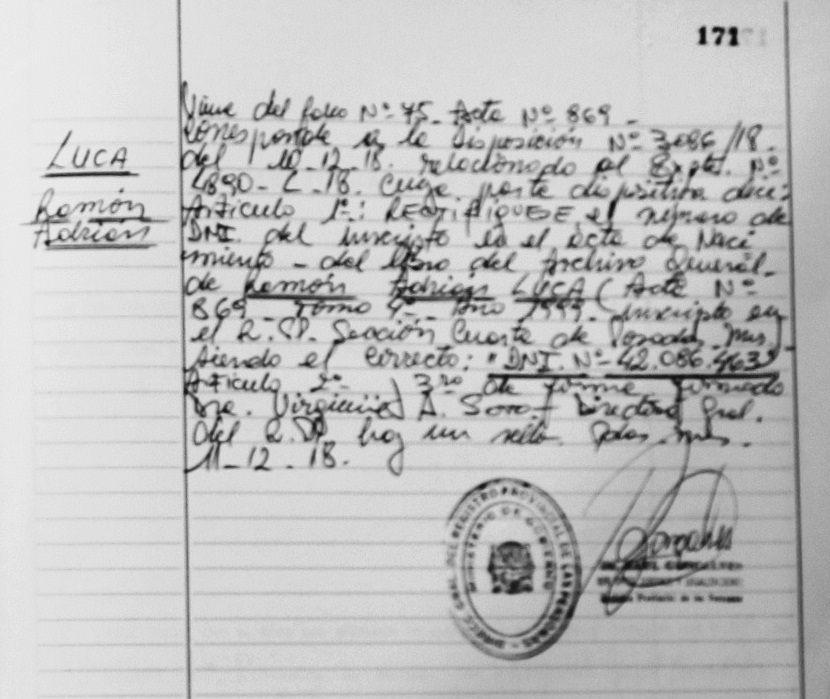 171
LUCA
Ramón
Adrián
Viene del folio Nº 75. Acta Nº 869 -
corresponde a la Disposición Nº 3086/18.
del 10-12-18. relacionado al Expte. Nº
4890-L-18. Cuya parte dispositiva dice:
Artículo 1º: RECTIFIQUESE el número de
DNI. del inscripto en el acta de Naci
miento - del libro del Archivo General -
de Ramón Adrian LUCA (Acta Nº
869 - Tomo 4º - Año 1999 - inscripto en
el R.P. Sección Cuarta de Posadas. Mns)
siendo el correcto: "DNI. Nº 42.086.463"
Artículo 2º - 3ro de forma firmado
Dra. Virginia A. Directora Gral.
del R.P. hay un sello. Pdas. Mns.
11-12-18.
DIRECC. GRAL. DEL REGISTRO PROVINCIAL DE LAS PERSONAS
MINISTERIO DE GOBIERNO
Provincial de las Personas